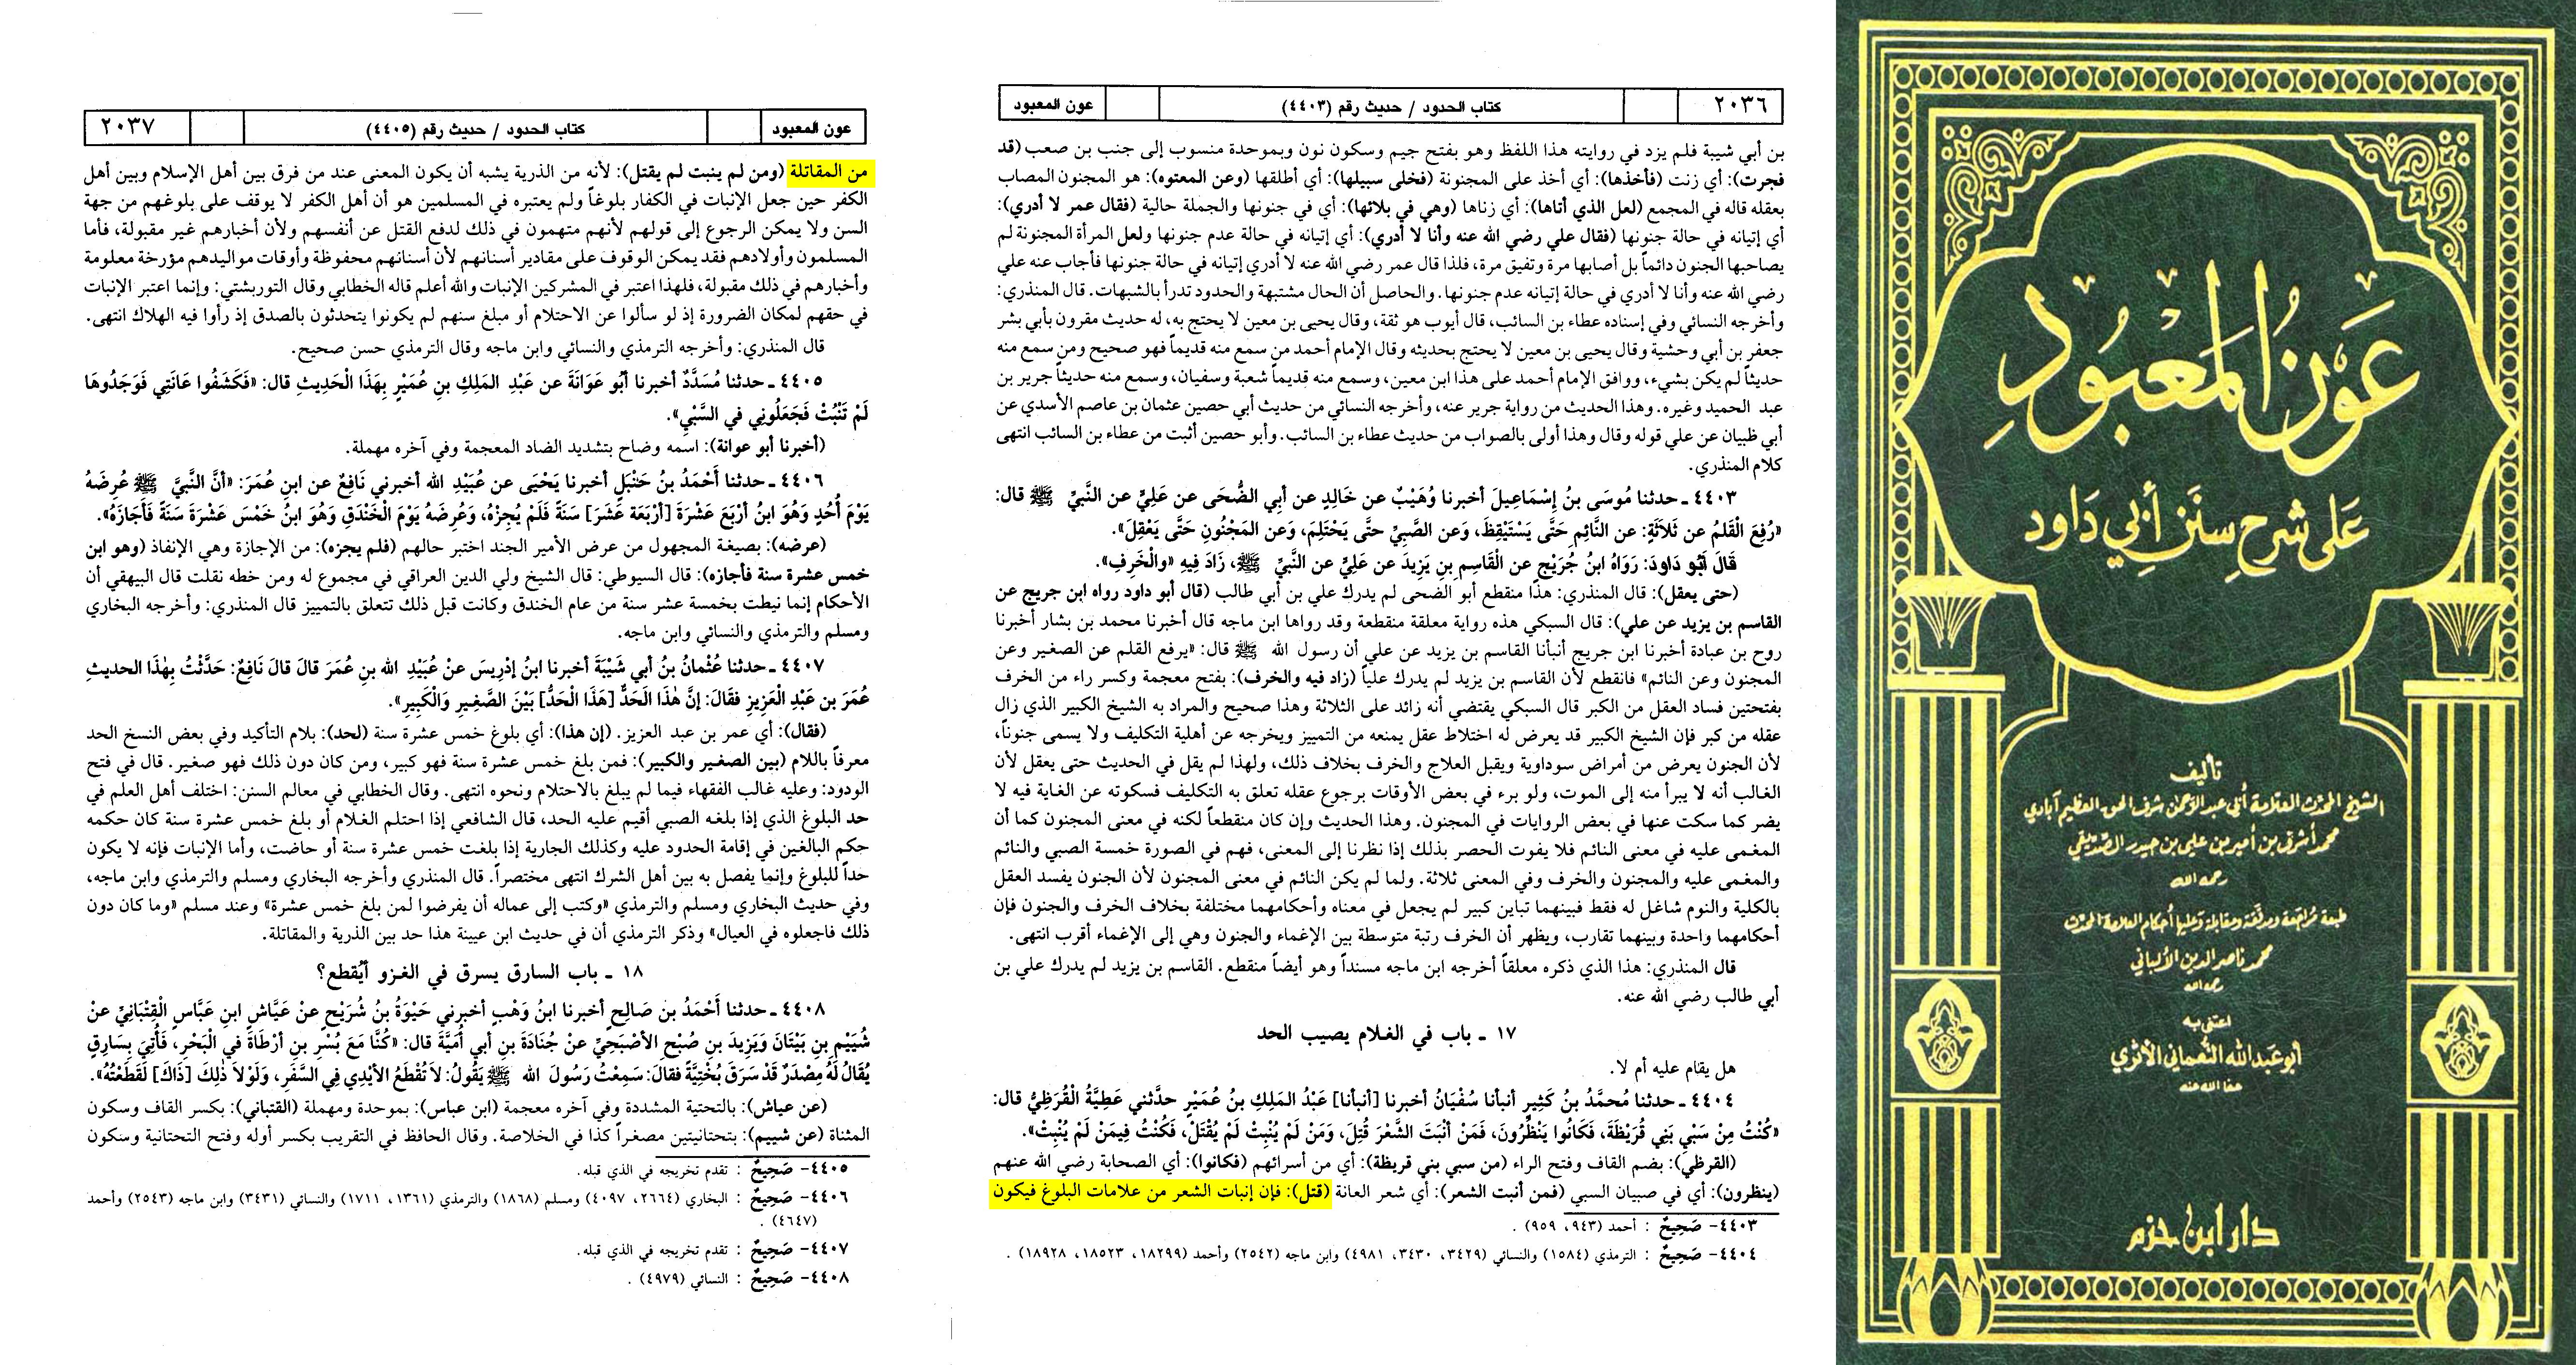 ٢٠٣٦
كتاب الحدود / حديث رقم (٤٤٠٣)
عون المعبود
بن أبي شيبة فلم يزد في روايته هذا اللفظ وهو بفتح جيم وسكون نون وبموحدة منسوب إلى جنب بن صعب (قد
فجرت): أي زنت (فأخذها): أي أخذ على المجنونة (فخلى سبيلها): أي أطلقها (وعن المعتوه): هو المجنون المصاب
بعقله قاله في المجمع (لعل الذي أتاها): أي زناها (وهي في بلائها): أي في جنونها والجملة حالية (فقال عمر لا أدري):
أي إتيانه في حالة جنونها (فقال علي رضي الله عنه وأنا لا أدري): أي إتيانه في حالة عدم جنونها ولعل المرأة المجنونة لم
يصاحبها الجنون دائماً بل أصابها مرة وتفيق مرة، فلذا قال عمر رضي الله عنه لا أدري إتيانه في حالة جنونها فأجاب عنه علي
رضي الله عنه وأنا لا أدري في حالة إتيانه عدم جنونها. والحاصل أن الحال مشتبهة والحدود تدرأ بالشبهات. قال المنذري:
وأخرجه النسائي وفي إسناده عطاء بن السائب، قال أيوب هو ثقة، وقال يحيى بن معين لا يحتج به، له حديث مقرون بأبي بشر
جعفر بن أبي وحشية وقال يحيى بن معين لا يحتج بحديثه وقال الإمام أحمد من سمع منه قديماً فهو صحيح ومن سمع منه
حديثاً لم يكن بشيء، ووافق الإمام أحمد على هذا ابن معين، وسمع منه قديماً شعبة وسفيان، وسمع منه حديثاً جرير بن
عبد الحميد وغيره. وهذا الحديث من رواية جرير عنه، وأخرجه النسائي من حديث أبي حصين عثمان بن عاصم الأسدي عن
أبي ظبيان عن علي قوله وقال وهذا أولى بالصواب من حديث عطاء بن السائب. وأبو حصين أثبت من عطاء بن السائب انتهى
كلام المنذري.
٤٤٠٣ ـ حدثنا مُوسَى بنُ إِسْمَاعِيلَ أخبرنا وُهَيْبٌ عن خَالِدٍ عن أبِي الضُّحَى عن عَلِيٍّ عن النَّبيِّ ﷺ قال:
«رُفِعَ الْقَلَمُ عن ثَلاَثَةٍ: عن النَّائِمِ حَتَّى يَسْتَيْقِظَ، وَعن الصَّبِيِّ حتَّى يَحْتَلِمَ، وَعن المَجْنُونِ حَتَّى يَعْقِلَ».
قَالَ أَبُو دَاودَ: رَوَاهُ ابنُ جُرَيْجٍ عن الْقَاسِمِ بنِ يَزِيدَ عن عَلِيٍّ عن النَّبيِّ ﷺ، زَادَ فِيهِ «والْخَرِفِ».
(حتى يعقل): قال المنذري: هذا منقطع أبو الضحى لم يدرك علي بن أبي طالب (قال أبو داود رواه ابن جريج عن
القاسم بن يزيد عن علي): قال السبكي هذه رواية معلقة منقطعة وقد رواها ابن ماجه قال أخبرنا محمد بن بشار أخبرنا
روح بن عبادة أخبرنا ابن جريج أنبأنا القاسم بن يزيد عن علي أن رسول الله ﷺ قال: «يرفع القلم عن الصغير وعن
المجنون وعن النائم» فانقطع لأن القاسم بن يزيد لم يدرك علياً (زاد فيه والخرف): بفتح معجمة وكسر راء من الخرف
بفتحتين فساد العقل من الكبر قال السبكي يقتضي أنه زائد على الثلاثة وهذا صحيح والمراد به الشيخ الكبير الذي زال
عقله من كبر فإن الشيخ الكبير قد يعرض له اختلاط عقل يمنعه من التمييز ويخرجه عن أهلية التكليف ولا يسمى جنوناً،
لأن الجنون يعرض من أمراض سوداوية ويقبل العلاج والخرف بخلاف ذلك، ولهذا لم يقل في الحديث حتى يعقل لأن
الغالب أنه لا يبرأ منه إلى الموت، ولو برء في بعض الأوقات برجوع عقله تعلق به التكليف فسكوته عن الغاية فيه لا
يضر كما سكت عنها في بعض الروايات في المجنون. وهذا الحديث وإن كان منقطعاً لكنه في معنى المجنون كما أن
المغمى عليه في معنى النائم فلا يفوت الحصر بذلك إذا نظرنا إلى المعنى، فهم في الصورة خمسة الصبي والنائم
والمغمى عليه والمجنون والخرف وفي المعنى ثلاثة. ولما لم يكن النائم في معنى المجنون لأن الجنون يفسد العقل
بالكلية والنوم شاغل له فقط فبينهما تباين كبير لم يجعل في معناه وأحكامهما مختلفة بخلاف الخرف والجنون فإن
أحكامهما واحدة وبينهما تقارب، ويظهر أن الخرف رتبة متوسطة بين الإغماء والجنون وهي إلى الإغماء أقرب انتهى.
قال المنذري: هذا الذي ذكره معلقاً أخرجه ابن ماجه مسنداً وهو أيضاً منقطع. القاسم بن يزيد لم يدرك علي بن
أبي طالب رضي الله عنه.
١٧ ـ باب في الغلام يصيب الحد
هل يقام عليه أم لا.
٤٤٠٤ ـ حدثنا مُحمَّدُ بنُ كَثِيرٍ أنبأنا سُفْيَانُ أخبرنا [أنبأنا] عَبْدُ المَلِكِ بنُ عُمَيْرٍ حدَّثني عَطِيَّةُ الْقُرَظِيُّ قال:
«كُنْتُ مِنْ سَبْيِ بَنِي قُرَيْظَةَ، فَكَانُوا يَنْظُرُونَ، فَمَنْ أنْبَتَ الشَّعْرَ قُتِلَ، وَمَنْ لَمْ يُنْبِتْ لَمْ يُقْتَلْ، فَكُنْتُ فِيمَنْ لَمْ يُنْبِتْ».
(القرظي): بضم القاف وفتح الراء (من سبي بني قريظة): أي من أسرائهم (فكانوا): أي الصحابة رضي الله عنهم
(ينظرون): أي في صبيان السبي (فمن أنبت الشعر): أي شعر العانة (قتل): فإن إنبات الشعر من علامات البلوغ فيكون
٤٤٠٣- صَحِيحٌ : أحمد (٩٤٣، ٩٥٩) .
٤٤٠٤- صَحِيحٌ : الترمذي (١٥٨٤) والنسائي (٣٤٢٩، ٣٤٣٠، ٤٩٨١) وابن ماجه (٢٥٤٢) وأحمد (١٨٢٩٩، ١٨٥٢٣، ١٨٩٢٨) .
عون المعبود
كتاب الحدود / حديث رقم (٤٤٠٥)
٢٠٣٧
من المقاتلة (ومن لم ينبت لم يقتل): لأنه من الذرية يشبه أن يكون المعنى عند من فرق بين أهل الإسلام وبين أهل
الكفر حين جعل الإنبات في الكفار بلوغاً ولم يعتبره في المسلمين هو أن أهل الكفر لا يوقف على بلوغهم من جهة
السن ولا يمكن الرجوع إلى قولهم لأنهم متهمون في ذلك لدفع القتل عن أنفسهم ولأن أخبارهم غير مقبولة، فأما
المسلمون وأولادهم فقد يمكن الوقوف على مقادير أسنانهم لأن أسنانهم محفوظة وأوقات مواليدهم مؤرخة معلومة
وأخبارهم في ذلك مقبولة، فلهذا اعتبر في المشركين الإنبات والله أعلم قاله الخطابي وقال التوربشتي: وإنما اعتبر الإنبات
في حقهم لمكان الضرورة إذ لو سألوا عن الاحتلام أو مبلغ سنهم لم يكونوا يتحدثون بالصدق إذ رأوا فيه الهلاك انتهى.
قال المنذري: وأخرجه الترمذي والنسائي وابن ماجه وقال الترمذي حسن صحيح.
٤٤٠٥ ـ حدثنا مُسَدَّدٌ أخبرنا أبُو عَوَانَةَ عن عَبْدِ المَلِكِ بنِ عُمَيْرٍ بِهَذَا الْحَدِيثِ قال: «فَكَشَفُوا عَانَتِي فَوَجَدُوهَا
لَمْ تَنْبُتْ فَجَعَلُونِي في السَّبْيِ».
(أخبرنا أبو عوانة): اسمه وضاح بتشديد الضاد المعجمة وفي آخره مهملة.
٤٤٠٦ ـ حدثنا أَحْمَدُ بنُ حَنْبَلٍ أخبرنا يَحْيَى عن عُبَيْدِ الله أخبرني نَافِعٌ عن ابنِ عُمَرَ: «أنَّ النَّبيَّ ﷺ عُرِضَهُ
يَوْمَ أُحُدٍ وَهُوَ ابنُ أرْبَعَ عَشْرَةَ [أرْبَعَةَ عَشَرَ] سَنَةً فَلَمْ يُجِزْهُ، وَعُرِضَهُ يَوْمَ الْخَنْدَقِ وَهُوَ ابنُ خَمْسَ عَشْرَةَ سَنَةً فَأَجَازَهُ».
(عرضه): بصيغة المجهول من عرض الأمير الجند اختبر حالهم (فلم يجزه): من الإجازة وهي الإنفاذ (وهو ابن
خمس عشرة سنة فأجازه): قال السيوطي: قال الشيخ ولي الدين العراقي في مجموع له ومن خطه نقلت قال البيهقي أن
الأحكام إنما نيطت بخمسة عشر سنة من عام الخندق وكانت قبل ذلك تتعلق بالتمييز قال المنذري: وأخرجه البخاري
ومسلم والترمذي والنسائي وابن ماجه.
٤٤٠٧ ـ حدثنا عُثْمانُ بنُ أبي شَيْبَةَ أخبرنا ابنُ إدْرِيسَ عنْ عُبَيْدِ الله بنِ عُمَرَ قالَ قالَ نَافِعٌ: حَدَّثْتُ بِهَذَا الحديثِ
عُمَرَ بن عَبْدِ الْعَزِيزِ فقَالَ: إنَّ هَذَا الَحَدُّ [هَذَا الْحَدُّ] بَيْنَ الصَّغِيرِ وَالْكَبِيرِ».
(فقال): أي عمر بن عبد العزيز. (إن هذا): أي بلوغ خمس عشرة سنة (لحد): بلام التأكيد وفي بعض النسخ الحد
معرفاً باللام (بين الصغير والكبير): فمن بلغ خمس عشرة سنة فهو كبير، ومن كان دون ذلك فهو صغير. قال في فتح
الودود: وعليه غالب الفقهاء فيما لم يبلغ بالاحتلام ونحوه انتهى. وقال الخطابي في معالم السنن: اختلف أهل العلم في
حد البلوغ الذي إذا بلغه الصبي أقيم عليه الحد، قال الشافعي إذا احتلم الغلام أو بلغ خمس عشرة سنة كان حكمه
حكم البالغين في إقامة الحدود عليه وكذلك الجارية إذا بلغت خمس عشرة سنة أو حاضت، وأما الإنبات فإنه لا يكون
حداً للبلوغ وإنما يفصل به بين أهل الشرك انتهى مختصراً. قال المنذري وأخرجه البخاري ومسلم والترمذي وابن ماجه،
وفي حديث البخاري ومسلم والترمذي «وكتب إلى عماله أن يفرضوا لمن بلغ خمس عشرة» وعند مسلم «وما كان دون
ذلك فاجعلوه في العيال» وذكر الترمذي أن في حديث ابن عيينة هذا حد بين الذرية والمقاتلة.
١٨ ـ باب السارق يسرق في الغزو أيُقطع؟
٤٤٠٨ ـ حدثنا أَحْمَدُ بن صَالحٍ أخبرنا ابنُ وَهْبٍ أخبرني حَيْوَةُ بنُ شُرَيْحٍ عنْ عَيَّاشٍ ابنِ عَبَّاسٍ الْقِتْبَانِيِّ عنْ
شُيَيْمِ بنِ بَيْتَانَ وَيَزِيدَ بنِ صُبْحٍ الأصْبَحِيِّ عنْ جُنَادَةَ بنِ أبي أُمَيَّةَ قال: «كُنَّا مَعَ بُسْرِ بنِ أرْطَاةَ في الْبَحْرِ، فَأُتِيَ بِسَارِقٍ
يُقَالُ لَهُ مِصْدَرٌ قَدْ سَرَقَ بُخْتِيَّةً فقالَ: سَمِعْتُ رَسُولَ الله ﷺ يَقُولُ: لاَ تُقْطَعُ الأيْدِي فِي السَّفَرِ، وَلَوْلاَ ذَلِكَ [ذَاكَ] لَقَطَعْتُهُ».
(عن عياش): بالتحتية المشددة وفي آخره معجمة (ابن عباس): بموحدة ومهملة (القتباني): بكسر القاف وسكون
المثناة (عن شييم): بتحتانيتين مصغراً كذا في الخلاصة. وقال الحافظ في التقريب بكسر أوله وفتح التحتانية وسكون
٤٤٠٥- صَحِيحٌ : تقدم تخريجه في الذي قبله.
٤٤٠٦- صَحِيحٌ : البخاري (٢٦٦٤، ٤٠٩٧) ومسلم (١٨٦٨) والترمذي (١٣٦١، ١٧١١) والنسائي (٣٤٣١) وابن ماجه (٢٥٤٣) وأحمد
(٤٦٤٧) .
٤٤٠٧- صَحِيحٌ : تقدم تخريجه في الذي قبله.
٤٤٠٨- صَحِيحٌ : النسائي (٤٩٧٩) .
عَون المَعبُودِ
عَلى شرح سُنَن أبي دَاود
تأليف
الشيخ المحدّث العلامة أبي عبد الرحمن شرف الحق العظيم آبادي
محمد أشرف بن أمير بن علي بن حيدر الصّدّيقي
رحمه الله
طبعة مُراجَعة ومدقّقة ومقابلة وعليها أحكام العلامة المحدّث
محمد ناصر الدين الألباني
رحمه الله
اعتنى به
أبو عبد الله النّعماني الأثري
عفا الله عنه
دار ابن حزم